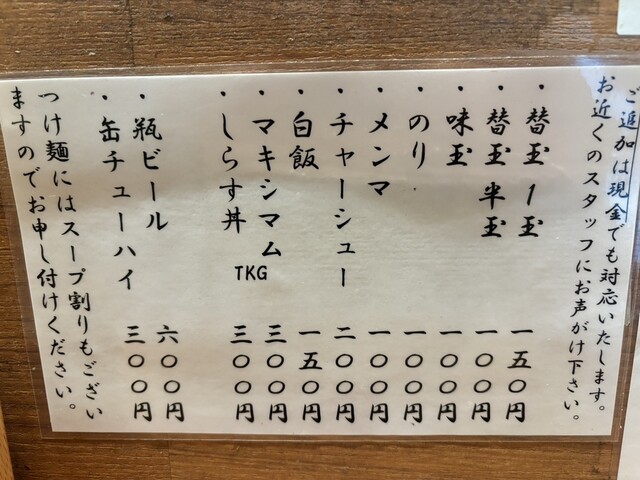 ご追加は現金でも対応いたします。
お近くのスタッフにお声がけ下さい。
・替玉1玉 一五〇円
・替玉半玉 一〇〇円
・味玉 一〇〇円
・のり 一〇〇円
・メンマ 一〇〇円
・チャーシュー 二〇〇円
・白飯 一五〇円
・マキシマムTKG 三〇〇円
・しらす丼 三〇〇円
・瓶ビール 六〇〇円
・缶チューハイ 三〇〇円
つけ麺にはスープ割りもござい
ますのでお申し付けください。